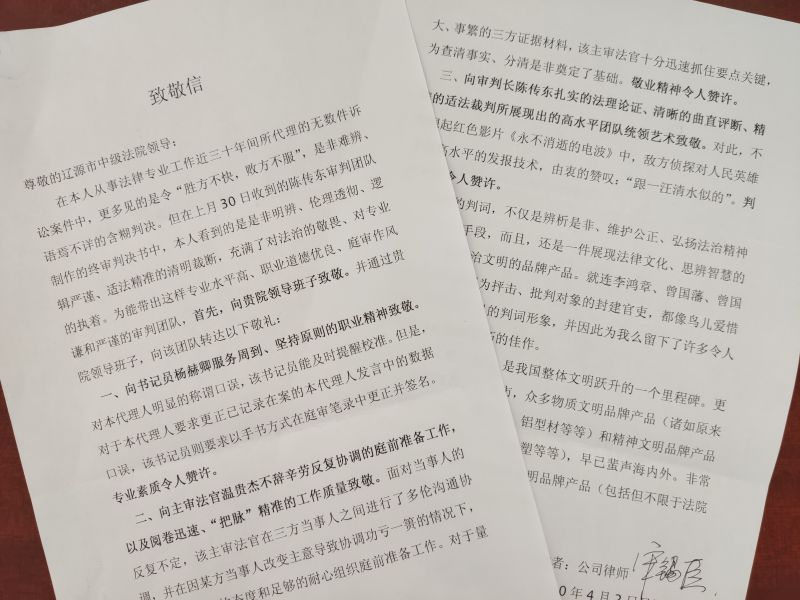 致敬信
尊敬的辽源市中级法院领导：
在本人从事法律专业工作近三十年间所代理的无数件诉
讼案件中，更多见的是令“胜方不快，败方不服”，是非难辨、
语焉不详的含糊判决。但在上月30日收到的陈传东审判团队
制作的终审判决书中，本人看到的是是非明辨、伦理透彻、逻
辑严谨、适法精准的清明裁断，充满了对法治的敬畏、对专业
的执着。为能带出这样专业水平高、职业道德优良、庭审作风
谦和严谨的审判团队，首先，向贵院领导班子致敬。并通过贵
院领导班子，向该团队转达以下敬礼：
一、向书记员杨赫卿服务周到、坚持原则的职业精神致敬。
对本代理人明显的称谓口误，该书记员能及时提醒校准。但是，
对于本代理人要求更正已记录在案的本代理人发言中的数据
口误，该书记员则要求以手书方式在庭审笔录中更正并签名。
专业素质令人赞许。
二、向主审法官温贵杰不辞辛劳反复协调的庭前准备工作，
以及阅卷迅速、“把脉”精准的工作质量致敬。面对当事人的
反复不定，该主审法官在三方当事人之间进行了多伦沟通协
调，并在因某方当事人改变主意导致协调功亏一篑的情况下，
态度和足够的耐心组织庭前准备工作。对于量
大、事繁的三方证据材料，该主审法官十分迅速抓住要点关键，
为查清事实、分清是非奠定了基础。敬业精神令人赞许。
三、向审判长陈传东扎实的法理论证、清晰的曲直评断、精
的适法裁判所展现出的高水平团队统领艺术致敬。对此，不
起红色影片《永不消逝的电波》中，敌方侦探对人民英雄
高水平的发报技术，由衷的赞叹：“跟一汪清水似的”。判
令人赞许。
的判词，不仅是辨析是非、维护公正、弘扬法治精神
手段，而且，还是一件展现法律文化、思辨智慧的
治文明的品牌产品。就连李鸿章、曾国藩、曾国
为抨击、批判对象的封建官吏，都像鸟儿爱惜
的判词形象，并因此为我么留下了许多令人
的佳作。
是我国整体文明跃升的一个里程碑。更
，众多物质文明品牌产品（诸如原来
铝型材等等）和精神文明品牌产品
塑等等），早已蜚声海内外。非常
明品牌产品（包括但不限于法院
者：公司律师
0年4月2日